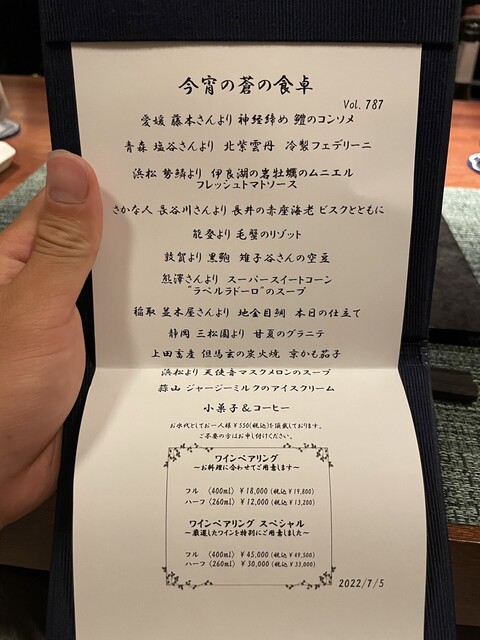 今宵の蒼の食卓
Vol. 787
愛媛 藤本さんより 神経締め 鱧のコンソメ
青森 塩谷さんより 北紫雲丹 冷製フェデリーニ
浜松 勢鱗より 伊良湖の岩牡蠣のムニエル
フレッシュトマトソース
さかな人 長谷川さんより 長井の赤座海老 ビスクとともに
能登より 毛蟹のリゾット
敦賀より 黒鮑 雉子谷さんの空豆
熊澤さんより スーパースイートコーン
"ラペルラドーロ"のスープ
稲取 並木屋さんより 地金目鯛 本日の仕立て
静岡 三松園より 甘夏のグラニテ
上田畜産 但馬玄の炭火焼 京かも茄子
浜松より 天使音マスクメロンのスープ
蒜山 ジャージーミルクのアイスクリーム
小菓子&コーヒー
お水代としてお一人様¥550(税込)を頂戴しております。
ご不要の方はお申し付けください。
ワインペアリング
~お料理に合わせてご用意します~
フル (400ml) ¥18,000 (税込¥19,800)
ハーフ (260ml) ¥12,000 (税込¥13,200)
ワインペアリング スペシャル
~厳選したワインを特別にご用意しました~
フル (400ml) ¥45,000 (税込¥49,500)
ハーフ (260ml) ¥30,000 (税込¥33,000)
2022/7/5